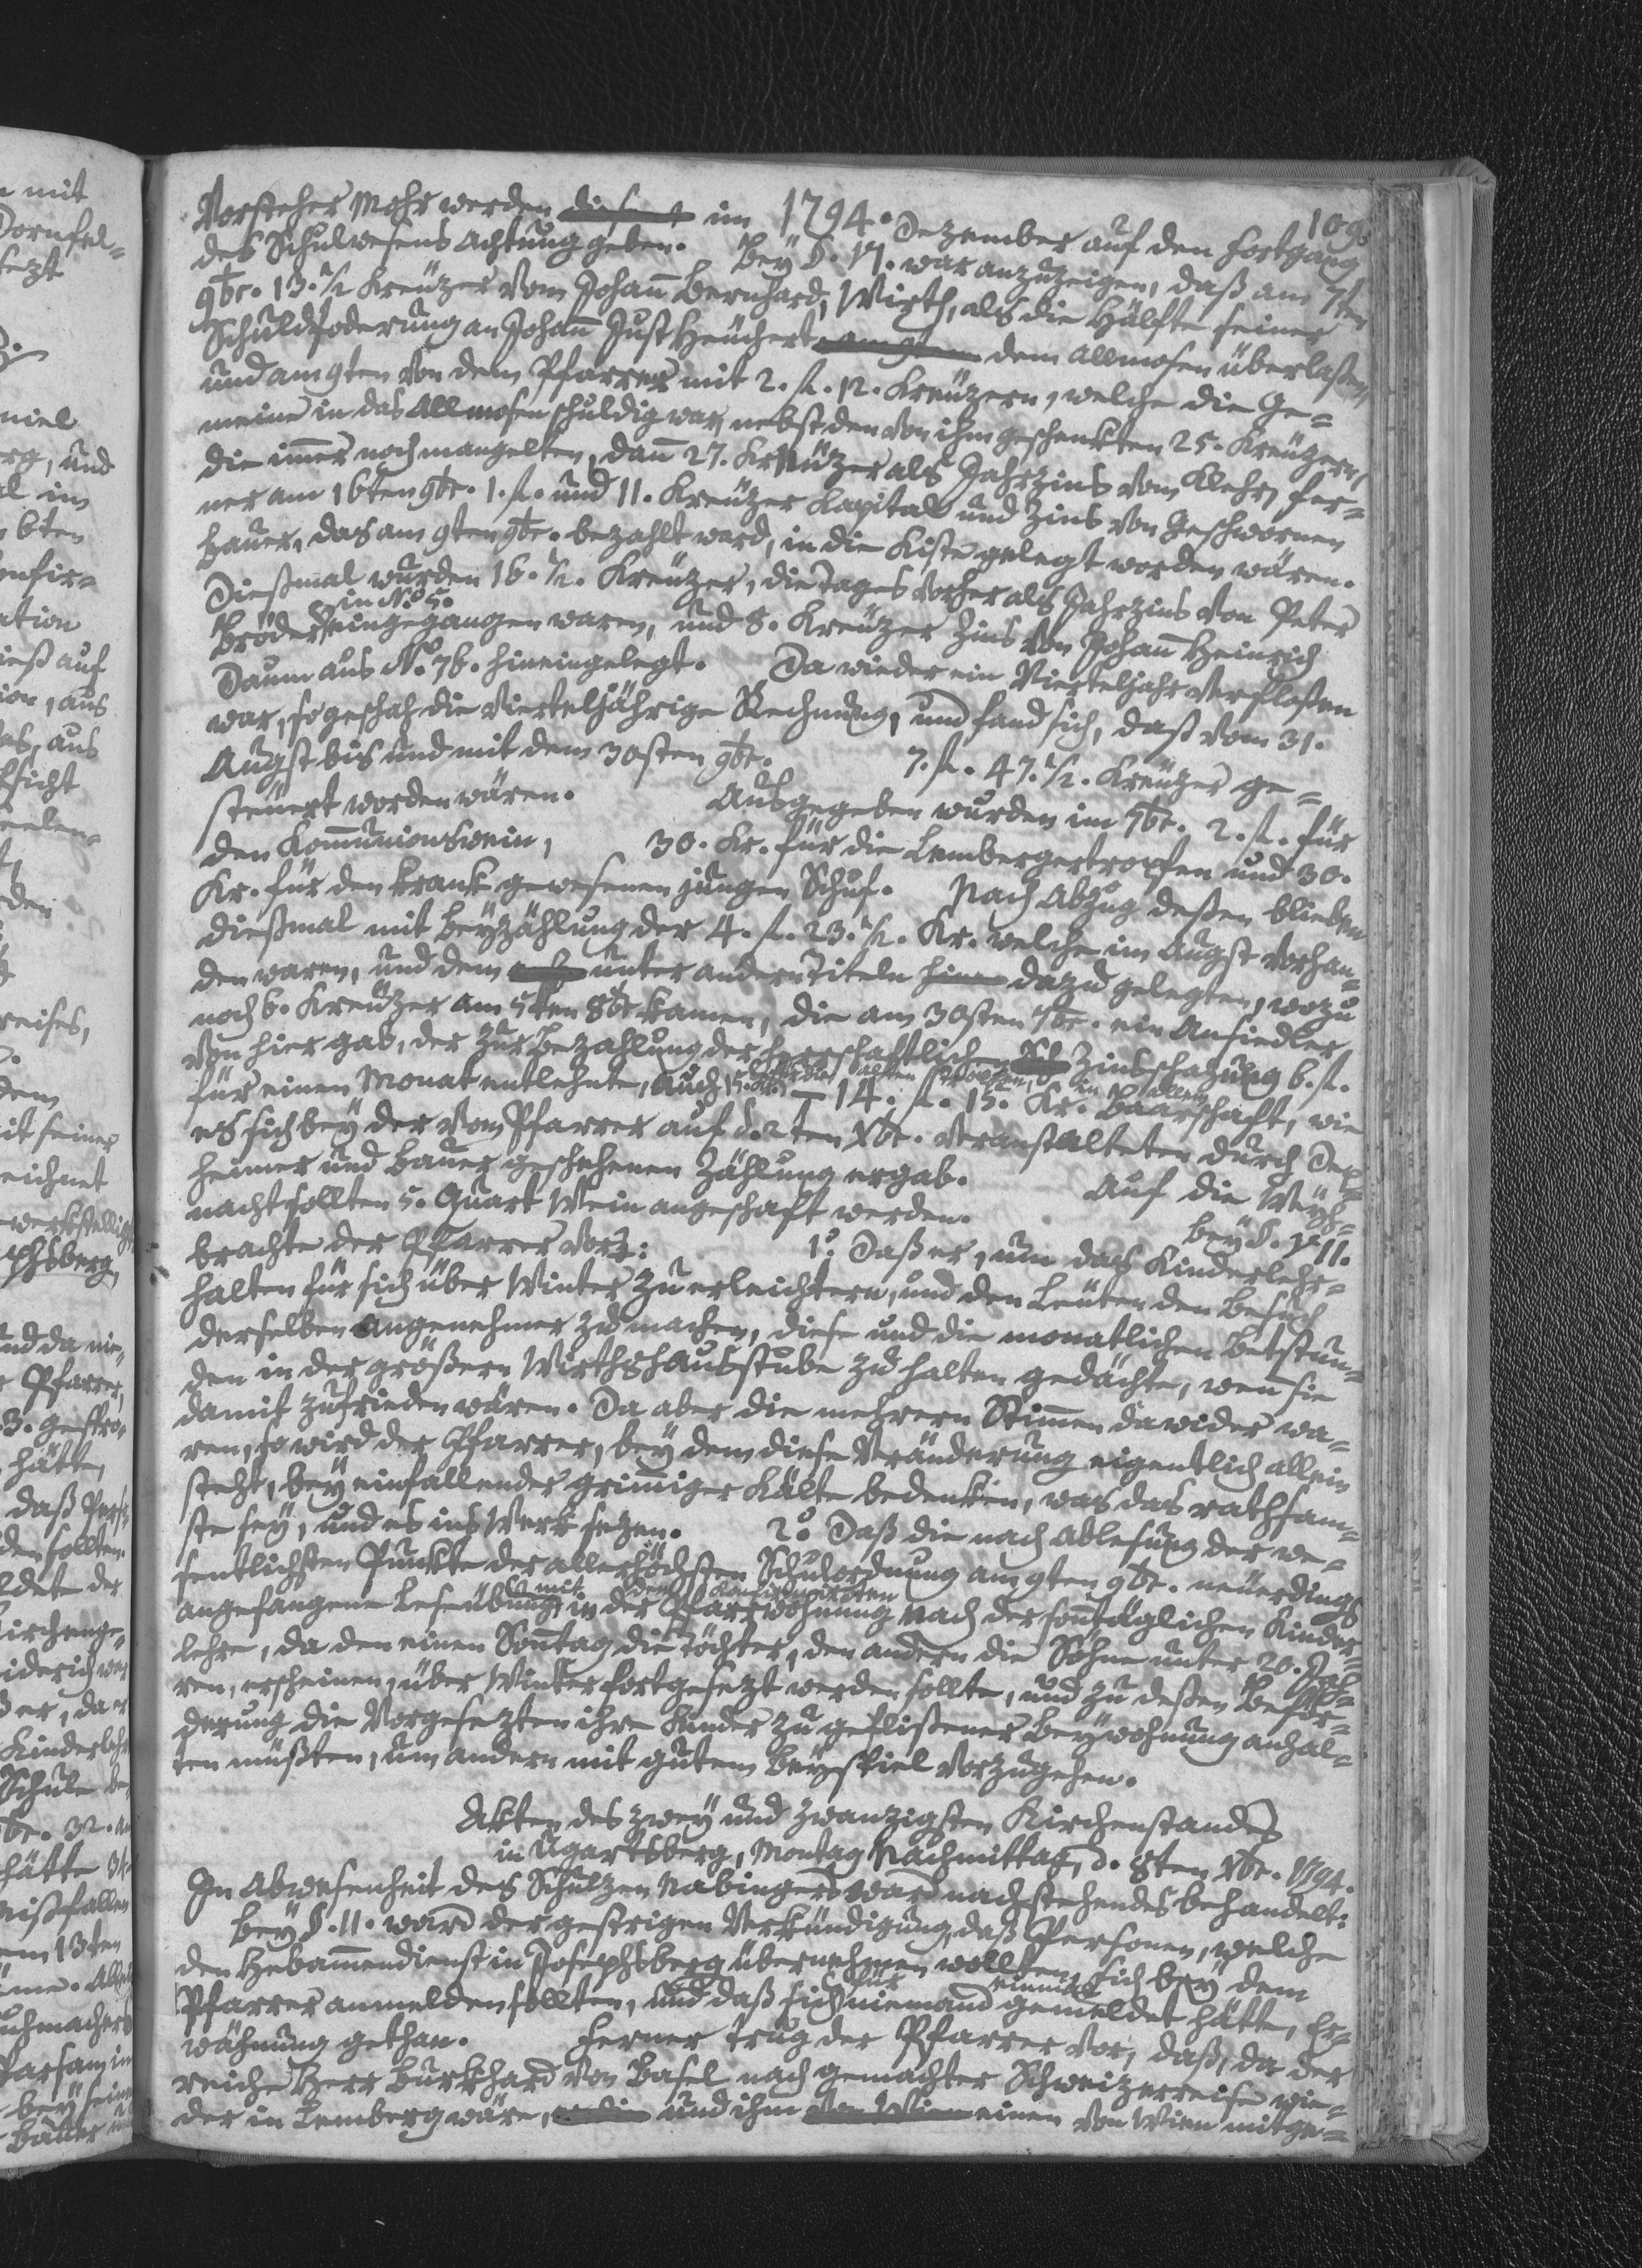 1794.
109.
Vorsteher Mohr werden im Dezember auf den Fortgang
des Schulwesens Achtung geben. Bey §. 17. war anzuzeigen, daß am 7ten
9br. 13.½ Kreüzer vom Johan̄ Bernhard, Wirth, als die Hälfte seiner
Schuldfoderung an Johan̄ Just Heuchert dem Allmosen überlaßen,
und am 9ten von dem Pfarrer mit 2. fl. 12. Kreüzern, welche die Ge=
meine in das Allmosen schuldig war, nebst den von ihm geschenkten 25. Kreüzern,
die im̄er noch mangelten, dan̄ 27. Kreüzer als Jahrzins vom Klehr, fer=
ner am 16ten 9br. 1. fl. und 11. Kreüzer Kapital und Zins von Geschwornen
Hauer, das am 9ten 9br. bezahlt ward, in die Kiste gelegt worden wären.
Dießmal wurden 16.½. Kreüzer, die Tages vorher als Jahrzins von Peter
in No. 5.
Bröder eingegangen waren, und 8. Kreüzer Zins von Johan̄ Heinrich
Daum aus No. 76. hineingelegt. Da wieder ein Vierteljahr verfloßen
war, so geschah die vierteljährige Rechnung, und fand sich, daß vom 31.
Augst bis und mit dem 30sten 9br. 7. fl. 47.½. Kreüzer ge=
steuert worden wären. Ausgegeben wurden im 7br. 2. fl. für
den Kom̄unionswein, 30. Kr. für die Lembergertropfen und 30.
Kr. für den krank gewesenen jungen Schuf. Nach Abzug deßen blieben
dießmal mit Beyzählung der 4. fl. 23.½. Kr. welche im Augst vorhan=
den waren, und dem unter andern Titeln dazu gelegten, wozu
noch 6. Kreüzer am 5ten 8br kamen, die am 30sten 7br. ein Ansiedler
von hier gab, der zur Bezahlung der herrschaftlichen Zinsschazung 6. fl.
für einen Monat entlehnte, auch 15. Kr. für die alten – 14. fl. 15. Kr. in allem Baarschaft, wie
es sich bey der vom Pfarrer auf d. 2ten Xbr. veranstalteten durch Dex=
heimer und Bauer geschehenen Zählung ergab. Auf die Weyh=
nacht sollten 5. Quart Wein angeschaft werden. Bey §. 11.
brachte der Pfarrer vor: 1o. Daß er, um das Kinderlehr=
halten für sich über Winter zu erleichtern, und den Leüten den Besuch
derselben angenehmer zu machen, diese und die monatlichen Betstun=
den in der größern Wirthshausstube zu halten gedächte, wen̄ sie
damit zufrieden wären. Da aber die mehrern Stim̄en dawider wa=
ren, so wird der Pfarrer, bey dem diese Veränderung eigentlich allein
steht, bey einfallender grim̄iger Kälte bedenken, was das rathsam=
ste sey, und es ins Werk sezen. 2o. Daß die nach Ablesung der we=
sentlichsten Punkte der allerhöchsten Schulordnung am 9ten 9br. neüerdings
angefangene Leseübung mit den Konfirmirten in der Pfarrwohnung nach der son̄täglichen Kinder=
lehre, da den einen Son̄tag die Töchter, den andern die Söhne unter 20. Jah=
ren, erscheinen, über Winter fortgesezt werden sollte, und zu deßen Beför=
derung die Vorgesezten ihre Kinder zu geflißener Beywohnung anhal=
ten müßten, um andern mit gutem Beyspiel vorzugehen.
Akten des zwey und zwanzigsten Kirchenstandes
in Ugartsberg, Montag Nachmittag, d. 8ten Xbr. 1794.
In Abwesenheit des Schulzen Nabingers ward nachstehendes behandelt:
Bey §. 11. ward der gestrigen Verkündigung, daß Personen, welche
den Hebam̄endienst in Josephsberg übernehmen wollten, sich bey dem
Pfarrer anmelden sollten, und daß sich niemand gemeldet hätte, Er=
wähnung gethan. Ferner trug der Pfarrer vor, daß, da der
reiche Herr Burkhard von Basel nach gemachter Schweizerreise wie=
der in Lemberg wäre, und ihm einen von Wien mitge=